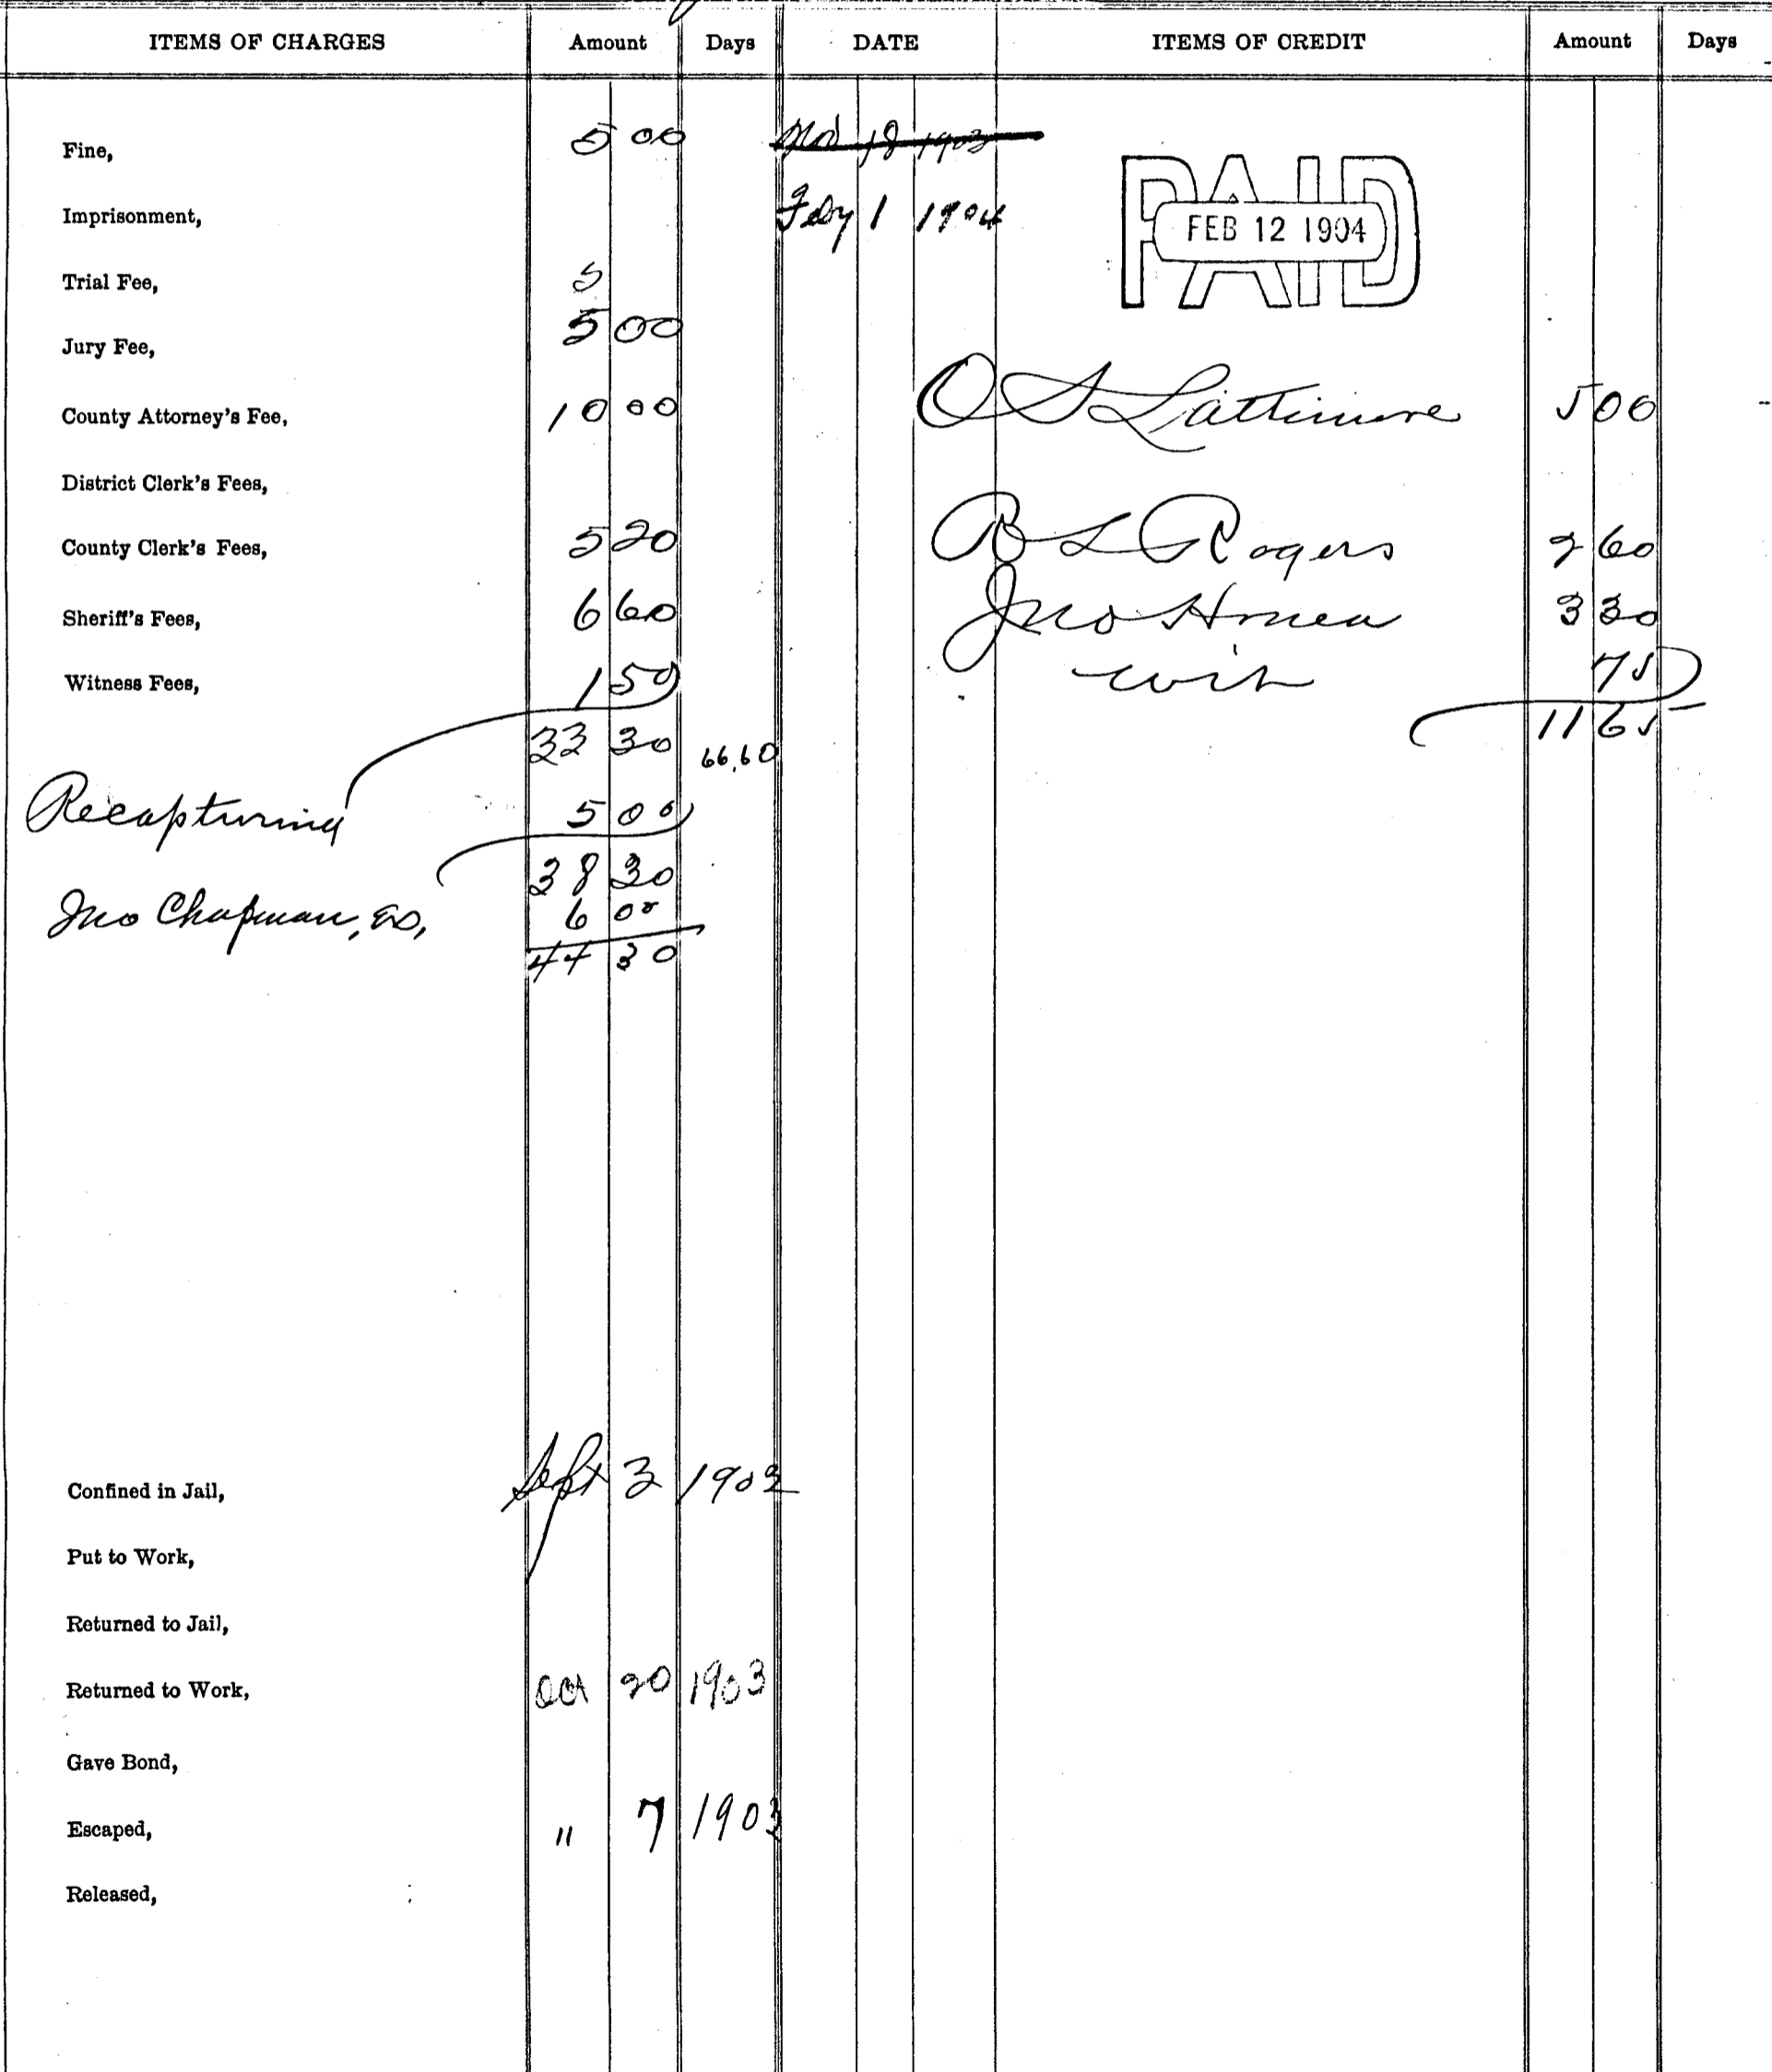 ITEMS OF CHARGES Amount Days DATE ITEMS OF CREDIT Amount Days
Fine, 5 00 Nov 18 1903
Imprisonment, Feby 1 1904
PAID FEB 12 1904
Trial Fee, 5
Jury Fee, 5 00
County Attorney's Fee, 10 00 O S Lattimore 5 00
District Clerk's Fees,
County Clerk's Fees, 5 20 R L Rogers 2 60
Sheriff's Fees, 6 60 Jno Honea 3 30
Witness Fees, 1 50 wit 75
33 30 66.60 11 65
Recapturing 5 00
38 30
Jno Chapman, 6 00
44 30
Confined in Jail, Sept 3 1903
Put to Work,
Returned to Jail,
Returned to Work, Oct 20 1903
Gave Bond,
Escaped, " 7 1903
Released,